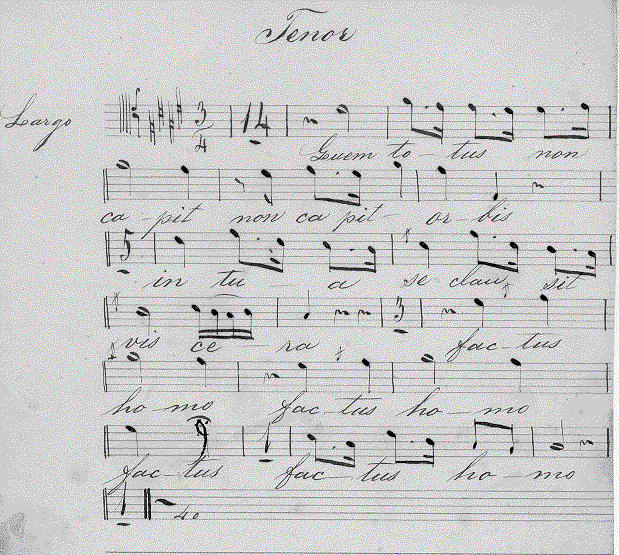 Tenor
Largo 3/4 14
Quem to-tus non
ca-pit non capit- or-bis
5
in tu - a se clau sit
3
vis ce ra fac-tus
ho-mo fac-tus ho-mo
1
fac-tus fac-tus ho-mo
1